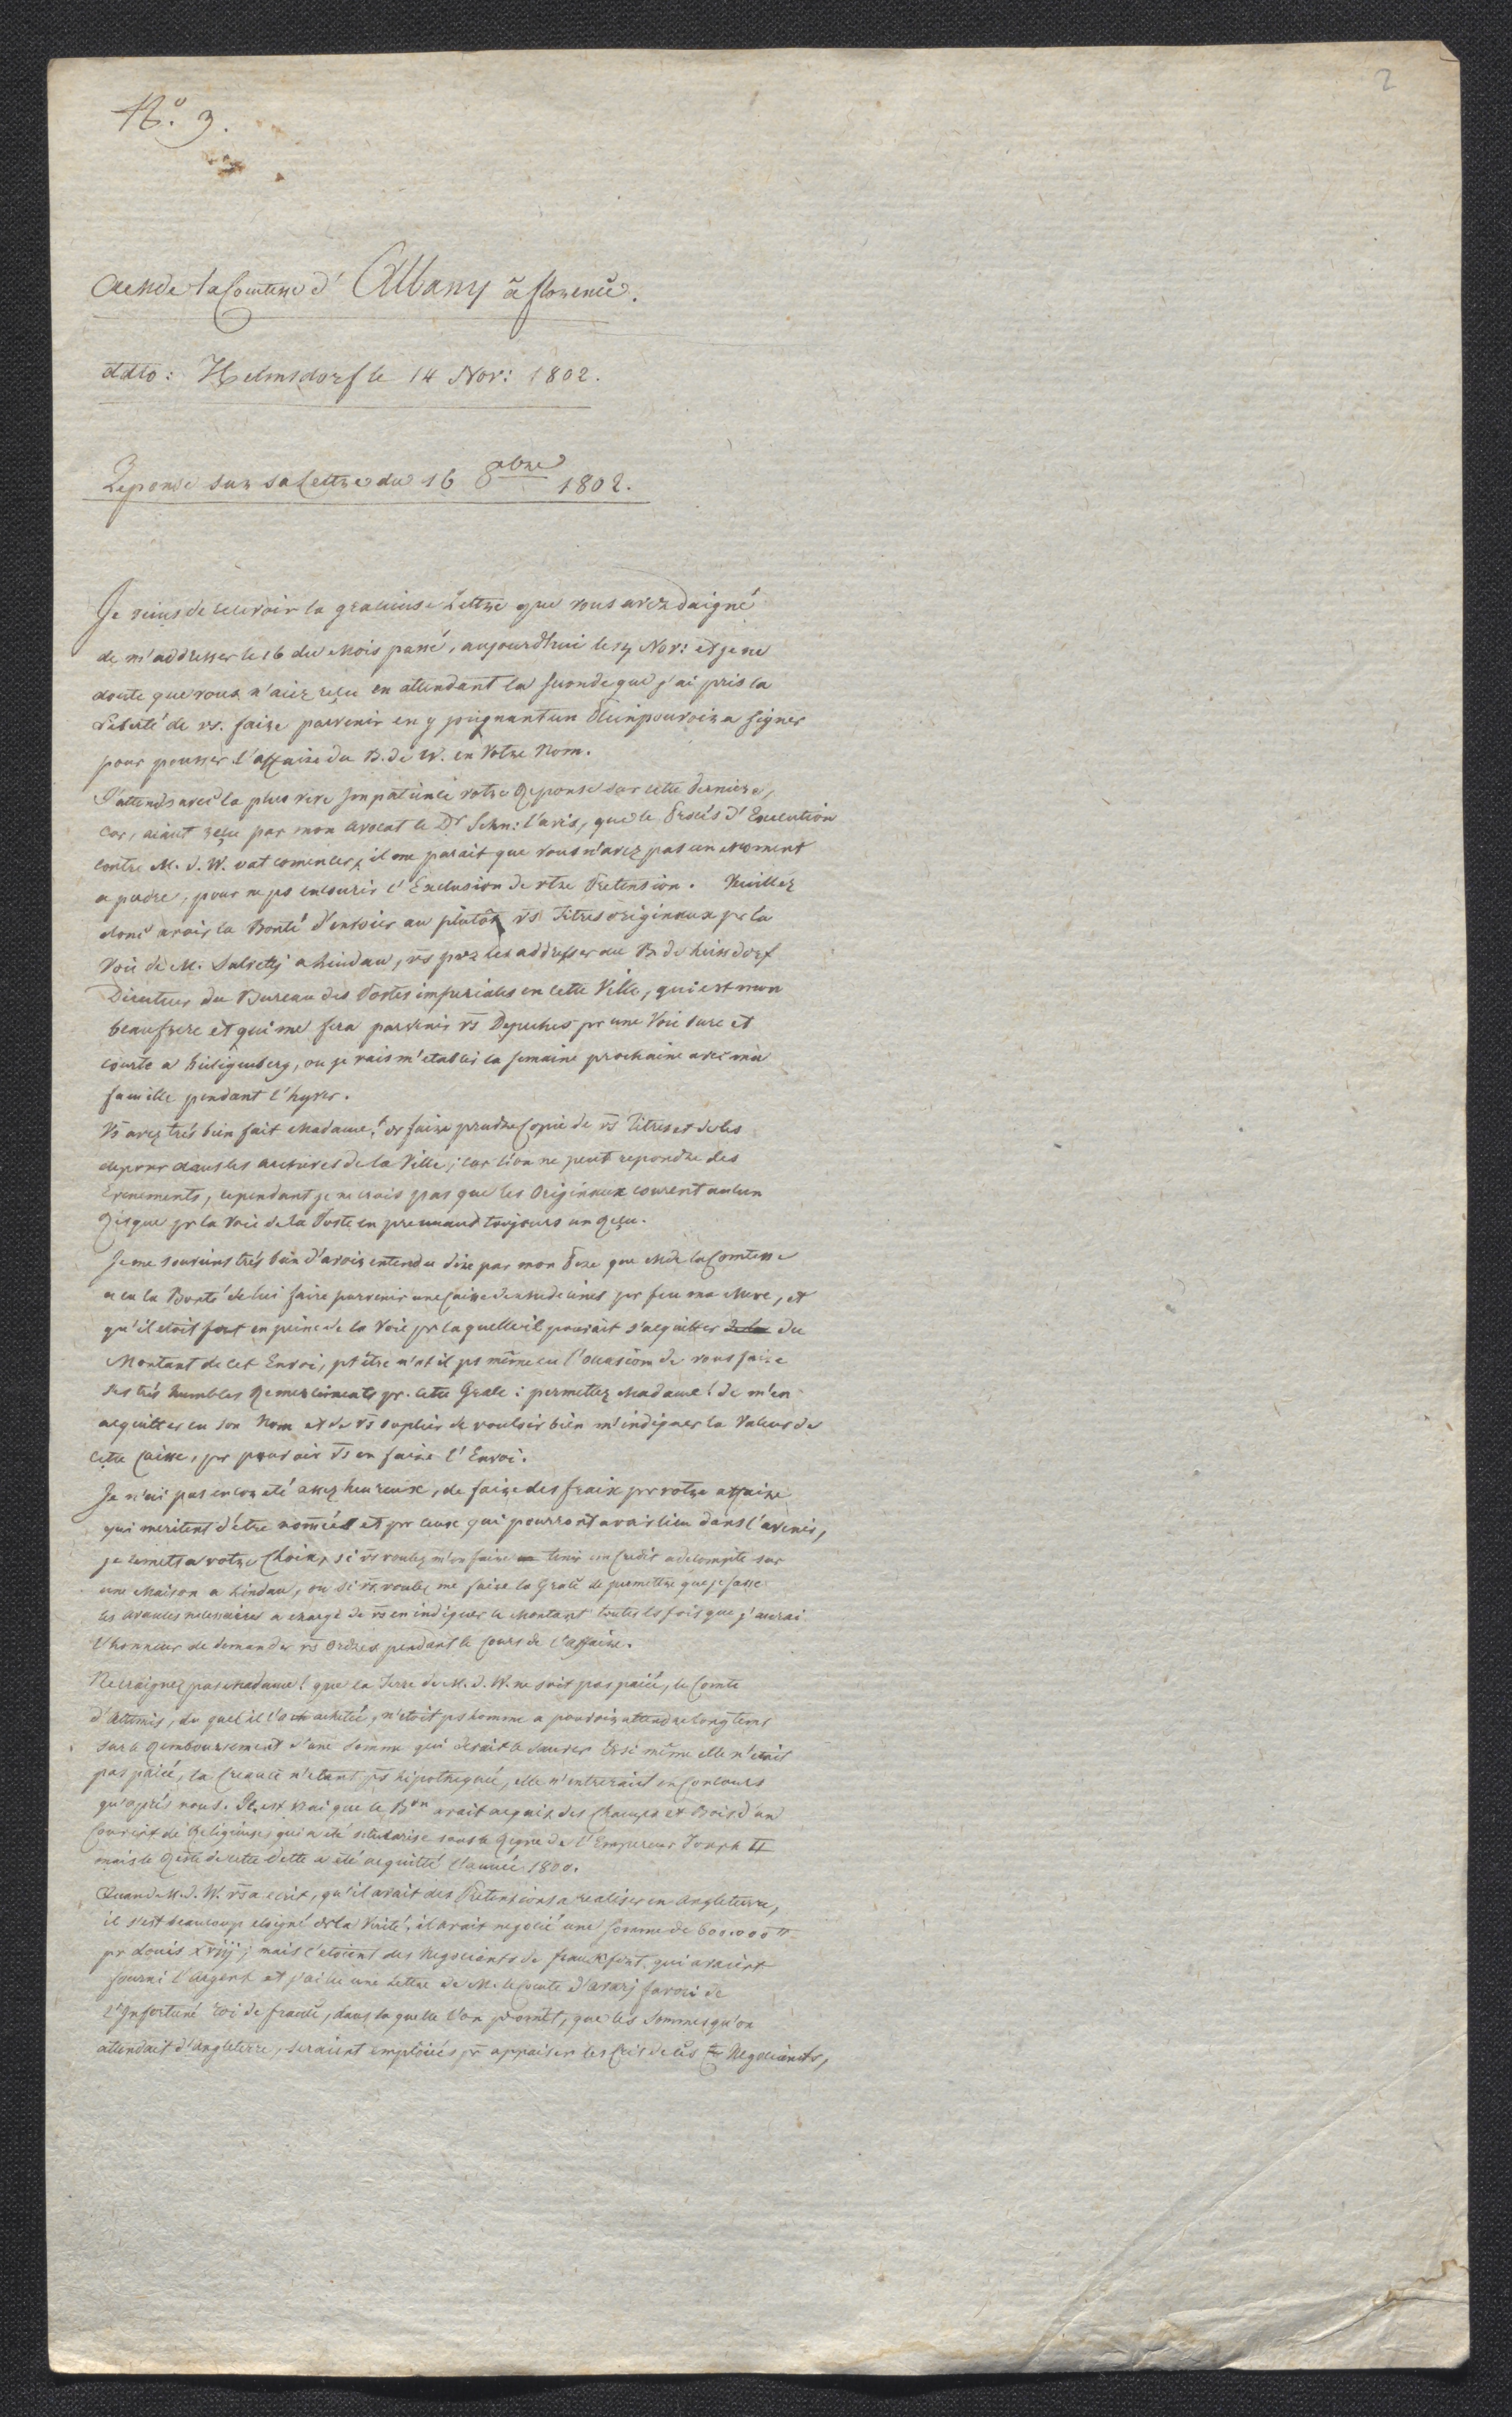 2
No. 3.
a Mde la Comtesse d'Albany à florence.
ddto: Helmsdorf le 14 Nov: 1802.
Reponse sur sa Lettre du 16 8bre 1802.
Je viens de recevoir la gracieuse Lettre que vous avez daigné
de m'addresser le 16 du Mois passé, aujourdhui le 14 Nov: et je ne
doute que vous n'aiez reçu en attendant la seconde que j'ai pris la
Liberté de vs. faire parvenir en y joignant un Pleinpouvoir a signer
pour pousser l'affaire du B. de W. en Votre Nom.
J'attends avec la plus vive Impatience votre Reponse sur cette derniere,
car, aiant reçu par mon Avocat le Dr Schn: l'avis, que le Procès d'Execution
contre M. d. W. vat comencer, il me parait que vous n'avez pas un Moment
a perdre, pour ne ps encourir l'Exclusion de vtre Pretension. Veuillez
donc avoir la Bonté d'envoier au plutôt vs Titres originaux pr la
Voie de M. a Lindau, vs prz les addresser au B. de
Directeur du Bureau des Postes imperiales en cette Ville, qui est mon
beaufrere et qui me fera parvenir vs Depeches pr une Voie sure et
courte a Heiligenberg, ou je vais m'etablir la semaine prochaine avec ma
famille pendant l'hyver.
Vs avez très bien fait Madame! de faire prendre Copie de vs Titres et de les
deposer dans les archives de la Ville; car l'on ne peut repondre des
Evenements, cependant je ne crois pas que les Originaux courent aucun
Risque pr la Voie de la Poste en prennand toujours un Reçu.
Je me souviens très bien d'avoir entendu dire par mon Pere que Mde la Comtesse
a eu la Bonté de lui faire parvenir une Caisse de Medecines pr feu ma Mere, et
qu'il etoit fort en peine de la Voie pr laquelle il pourait s'acquitter du
Montant de cet Envoi, pt être n'at il ps même eu l'occasion de vous faire
ses très humbles Remerciments pr. cette Grace: permettez Madame! de m'en
acquitter en son Nom et de vs suplier de vouloir bien m'indiquer la Valeur de
cette Caisse, pr pouvoir vs en faire l'Envoi.
Je n'ai pas encore été assez heureux, de faire des fraix pr votre affaire
qui meritent d'être nomées et pr ceux qui pourront avoir lieu dans l'avenir,
je remets a votre Choix, si vs voulez m'en faire tenir un Credit a decompte sur
une Maison a Lindau, ou si vs. voulez me faire la Grace de permettre que je fasse
les avances necessaires a charge de vs en indiquer le Montant toutes les fois que j'aurai
l'honneur de demander vs Ordres pendant le Cours de l'affaire.
Ne craignez pas Madame! que la Terre de M. d. W. ne soit pas paiée, le Comte
d'Attimis, du quel il l'a achetée, n'etoit ps homme a pouvoir attendre longtems
sur le Remboursement d'une Somme qui devait le sauver Et si même elle n'etait
pas paiée, la Creance n'etant ps hipothequée, elle n'entreroit en Concours
qu'après nous. Il est vrai que le Bon avait acquis des Champs et Bois d'un
Couvent de Religieuses qui a été secularisé sous le Regne de l'Empereur Joseph II
mais le Reste de cette Dette a été acquitté l'année 1800.
Quand M. d. W. vs a ecrit, qu'il avait des Pretensions a realiser en Angleterre,
il s'est beaucoup eloigné de la Verité, il avait negocié une somme de 600.000 #
pr Louis xviij; mais c'etoient des Negociants de francfort, qui avaient
fourni l'Argent et j'ai lu une Lettre de M. le Comte d'Avarj favori de
l'Infortuné Roi de france, dans laquelle l'on promêt, que les Sommes qu'on
attendait d'Angleterre, seraient emploiées pr appaiser les Cris de ces Negociants,